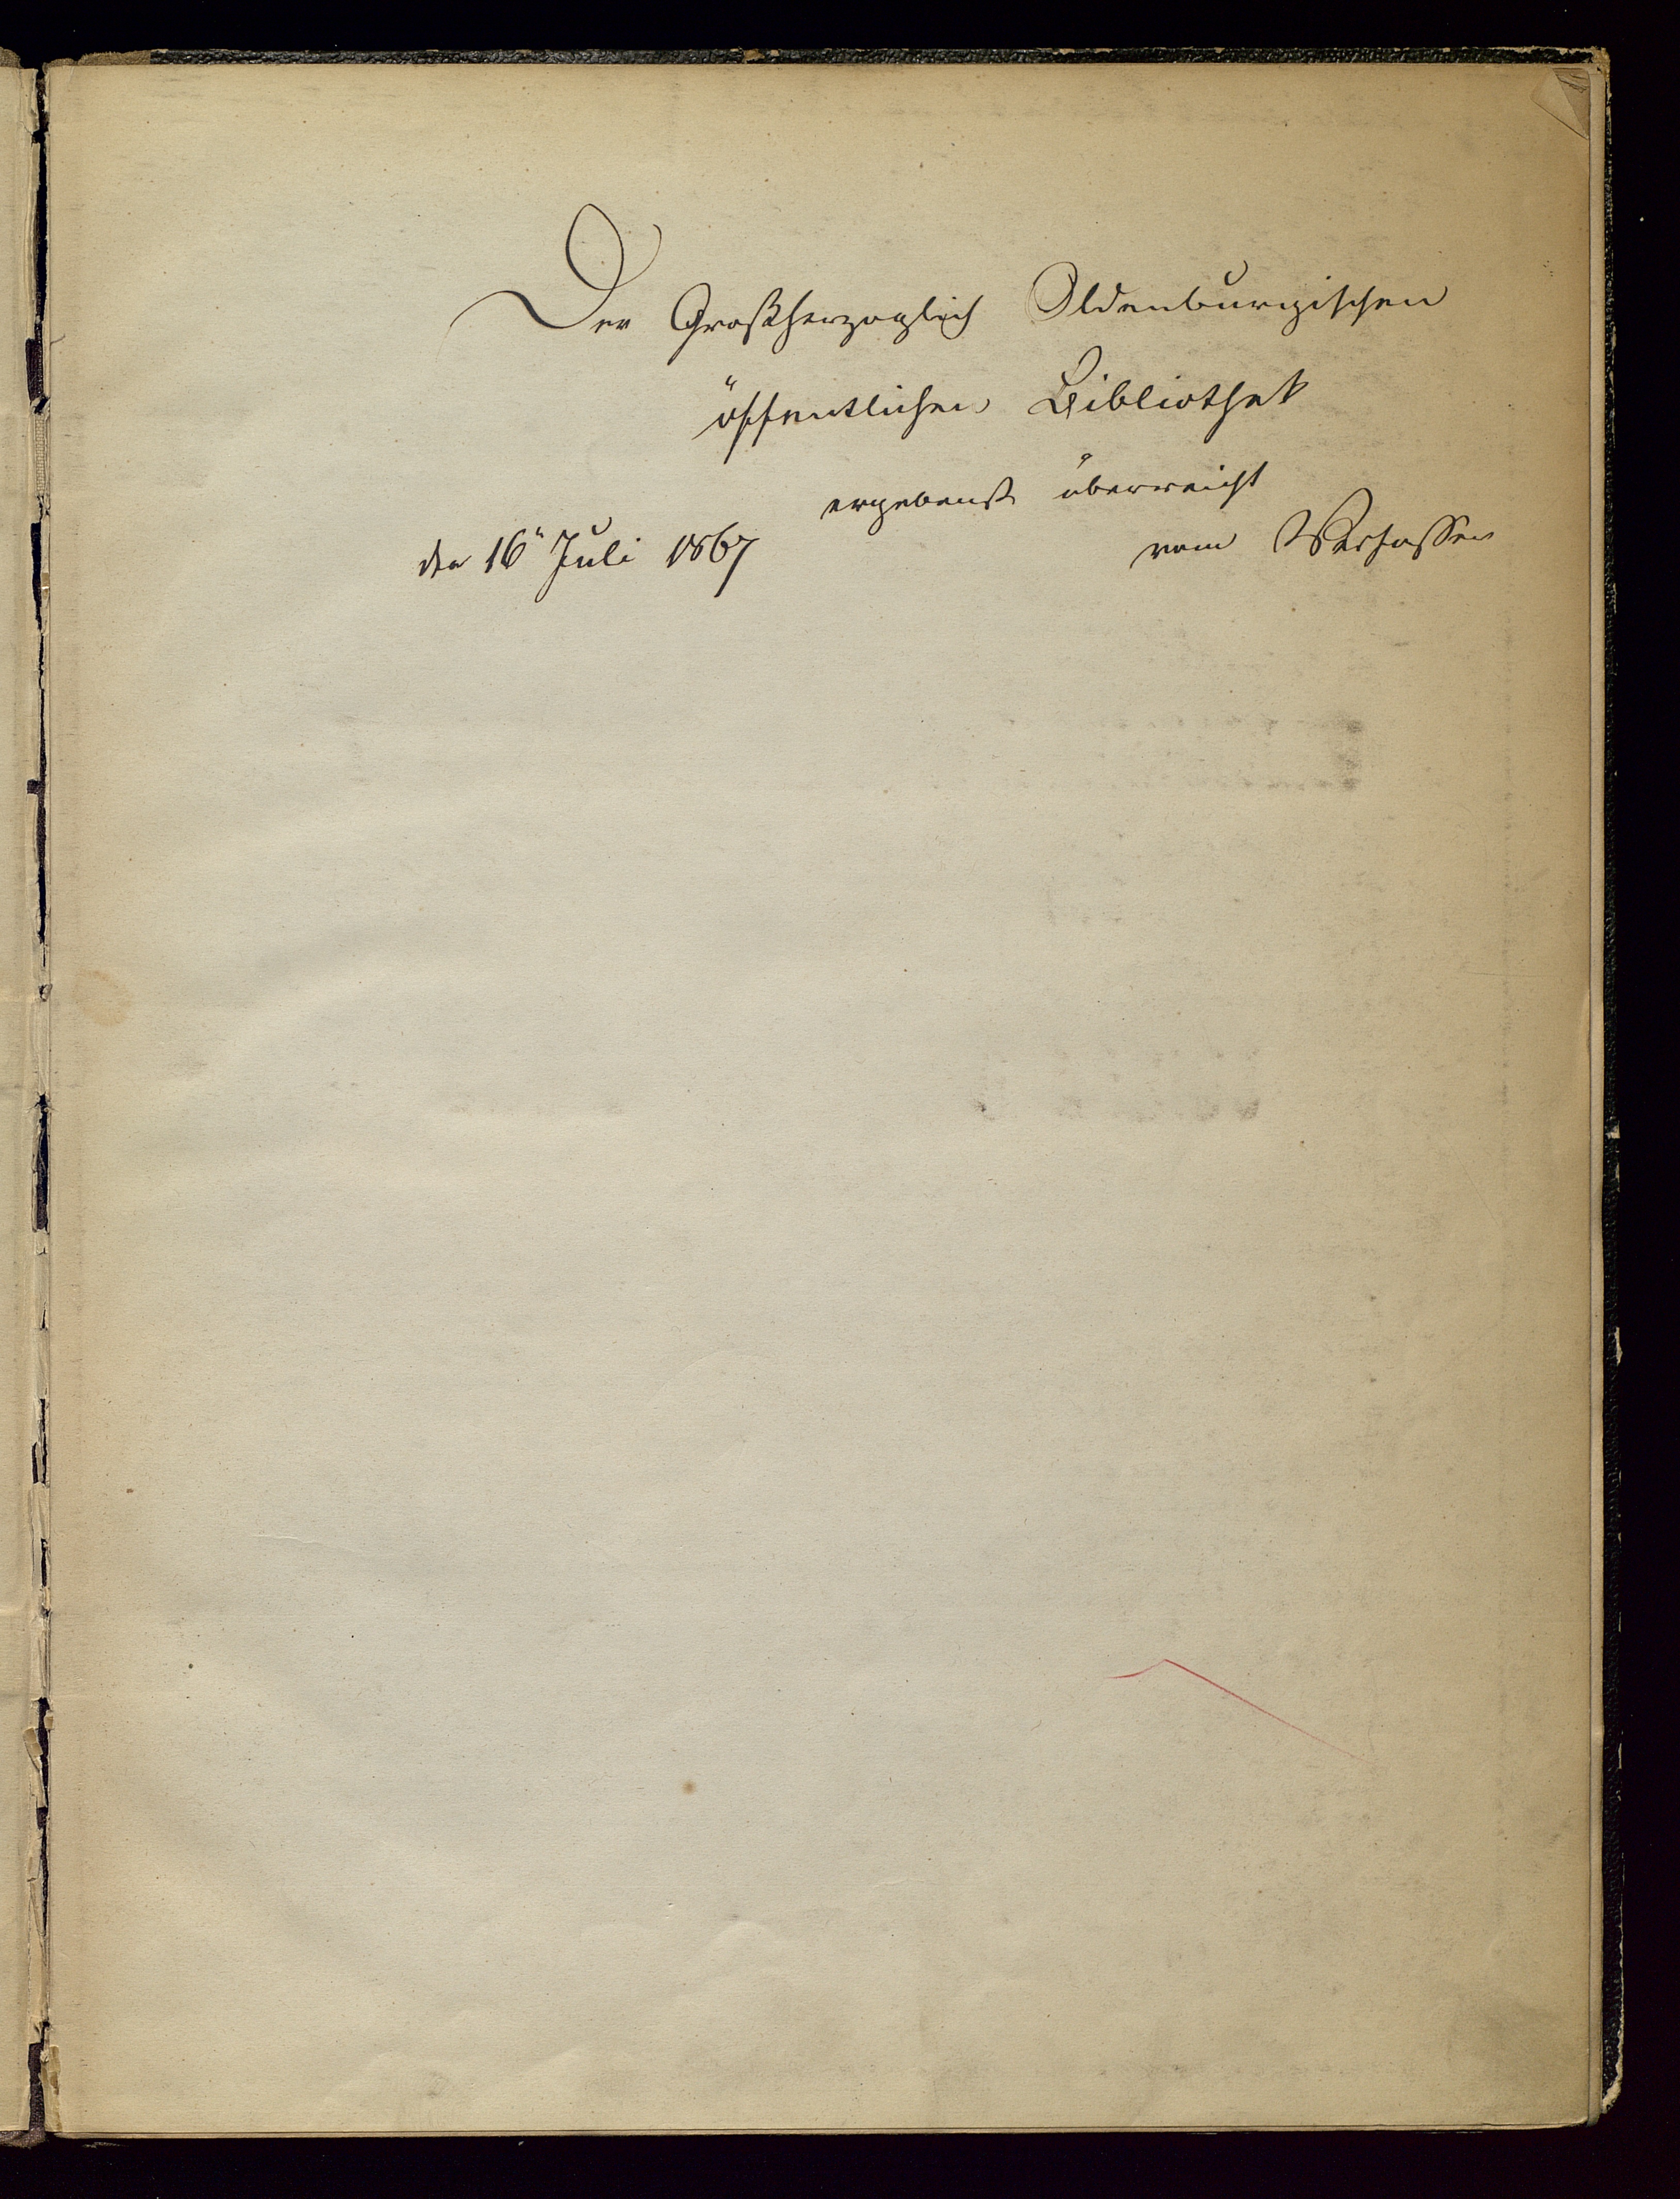 Der Großherzoglich Oldenburgischen
öffentlichen Bibliothek
ergebenst überreicht
den 16n Juli 1867 vom Verfasser